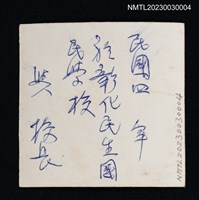 NMTL20230030004
民國四 年
於彰化民生國
民學校
與 校長
NMTL20230030004